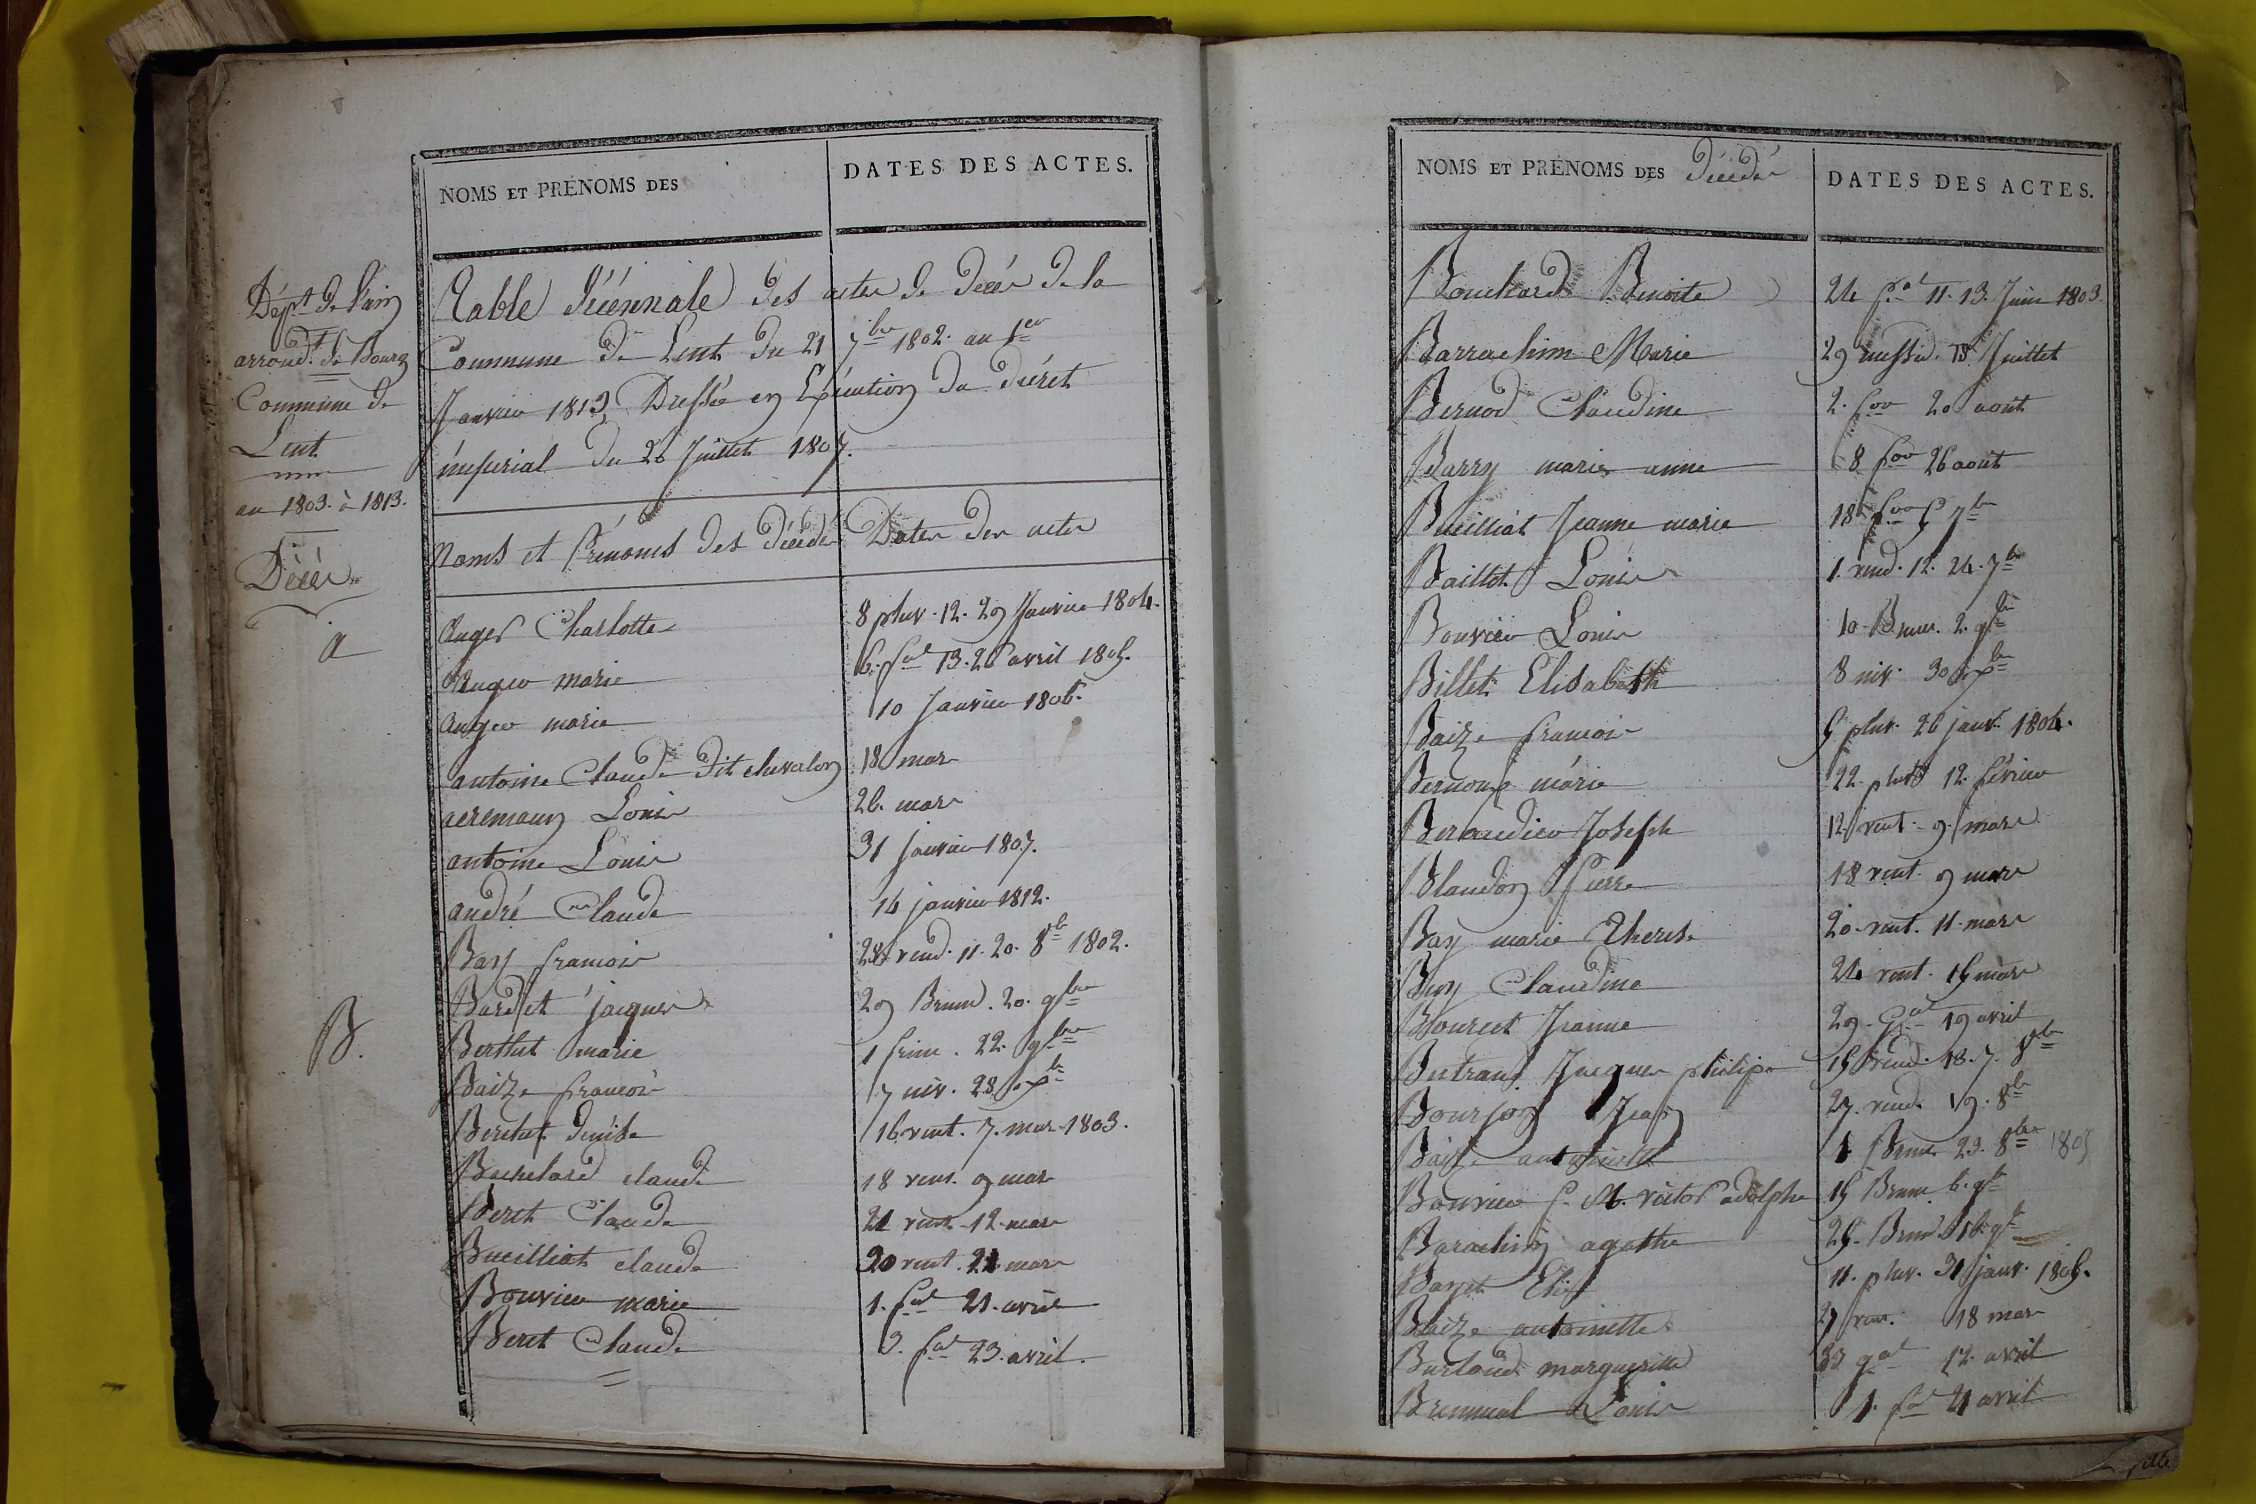 Dép.t de l'ain
arrond.t de Bourg
Commune de
Lent
an 1803. à 1813.
Décès
a
B.
NOMS ET PRÉNOMS DES
DATES DES ACTES.
Table décennale des actes de décès de la
Commune de Lent du 21 7bre 1802. au 1er
Janvier 1813 Dressée en Exécution du décret
impérial du 20 Juillet 1807.
Noms et Prénoms des décédés Dates des actes
Auger Charlotte 8 pluv. 12. 29 Janvier 1804.
Auger marie 6. fal 13. 26 avril 1805.
Auger marie 10 Janvier 1806.
antoine Claude dit chevalon 18 mars
Louis 26. mars
antoine Louis 31 janvier 1807.
andré Claude 14 janvier 1812.
Bay francois 28 vend. 11. 20. 8bre 1802.
Bardet jacques 29 Brum. 20. 9bre
Berthet marie 1 frim. 22. 9bre
Baize francois 7 niv. 28 xbre
Berthet denise 16 vent. 7. mars 1803.
Bachelard claude 18 vent. 9 mars
Beret Claude 21 vent. 12. mars
Bueilliat claude 30 vent. 21 mars
Bouvier marie 1. fal 21. avril
Beret Claude 3. fal 23. avril.
NOMS ET PRÉNOMS DES décédés
DATES DES ACTES.
Bouchard Benoite 24 pal 11. 13. Juin 1803.
Barrachin Marie 29 messid. 18 Juillet
Bernod Claudine 2. for 20 aout
Barry marie anne 8 for 26 aout
Bueilliat Jeanne marie 18 for 5 7bre
Baillet Louis 1. vend. 12. 24. 7bre
Bouvier Louis 10 Brum. 2. 9bre
Billet Elisabeth 8 niv. 30 xbre
Baize francois 5 pluv. 26 janv. 1804.
marie 22. pluv 12. février
Beraudier Joseph 12 vent. 3. mars
Blandon Pierre 18 vent. 9 mars
Bay marie Therese 20. vent. 11. mars
Buy Claudine 24 vent. 15 mars
Bourcet Jeanne 29. gal 19 avril
Bertrand Jacques philipe 15 vend. 13. 7. 8bre
Bourjon Jean 27. vend. 19. 8bre
Baize antoinette 1 Brum. 23. 8bre 1805
Bouvier f. M. victor adolphe 15 Brum. 6. 9bre
Barachin agathe 25. Brum. 16. 9bre
Bayet Elis. 11. pluv. 31 janv. 1805.
Baize antoinette 27 ven. 18 mars
Burtaud marguerite 22 gal 12. avril
Louis 1. fal 21 avril